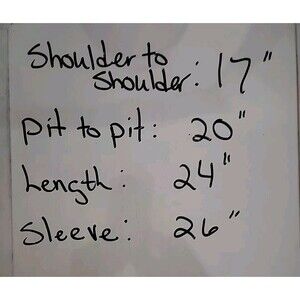 Shoulder to
Shoulder: 17"
pit to pit: 20"
Length: 24"
Sleeve: 26"